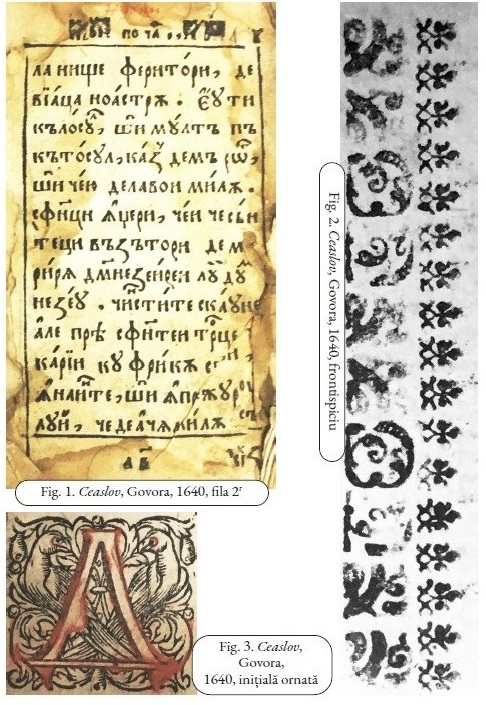 по ча
ла нище феритори, де
вїаца ноастрѫ . Еꙋ ти
кълосꙋ, ши мꙋлтъ пъ
кътосꙋл, каꙁ демъ рѡ,
ши чею делавои милѫ .
сфинци ꙟџери, чеи че сън
теци въꙁътори де м
рирѧ дмнеꙁеирей лꙋ дꙋ
неꙁеꙋ . чиститe скаꙋне
але прѣ сфнтеи трце
карїи кꙋ фрикѫ
ꙟнаинте, ши ꙟпрѫꙋр
лꙋи, че де ачѧ милѫ
Fig. 1. Ceaslov, Govora, 1640, fila 2r
Fig. 2. Ceaslov, Govora, 1640, frontispiciu
Fig. 3. Ceaslov,
Govora,
1640, inițială ornată